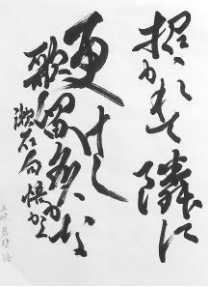 招かれて隣に
更けし
歌留多かな
漱石句 悟かく